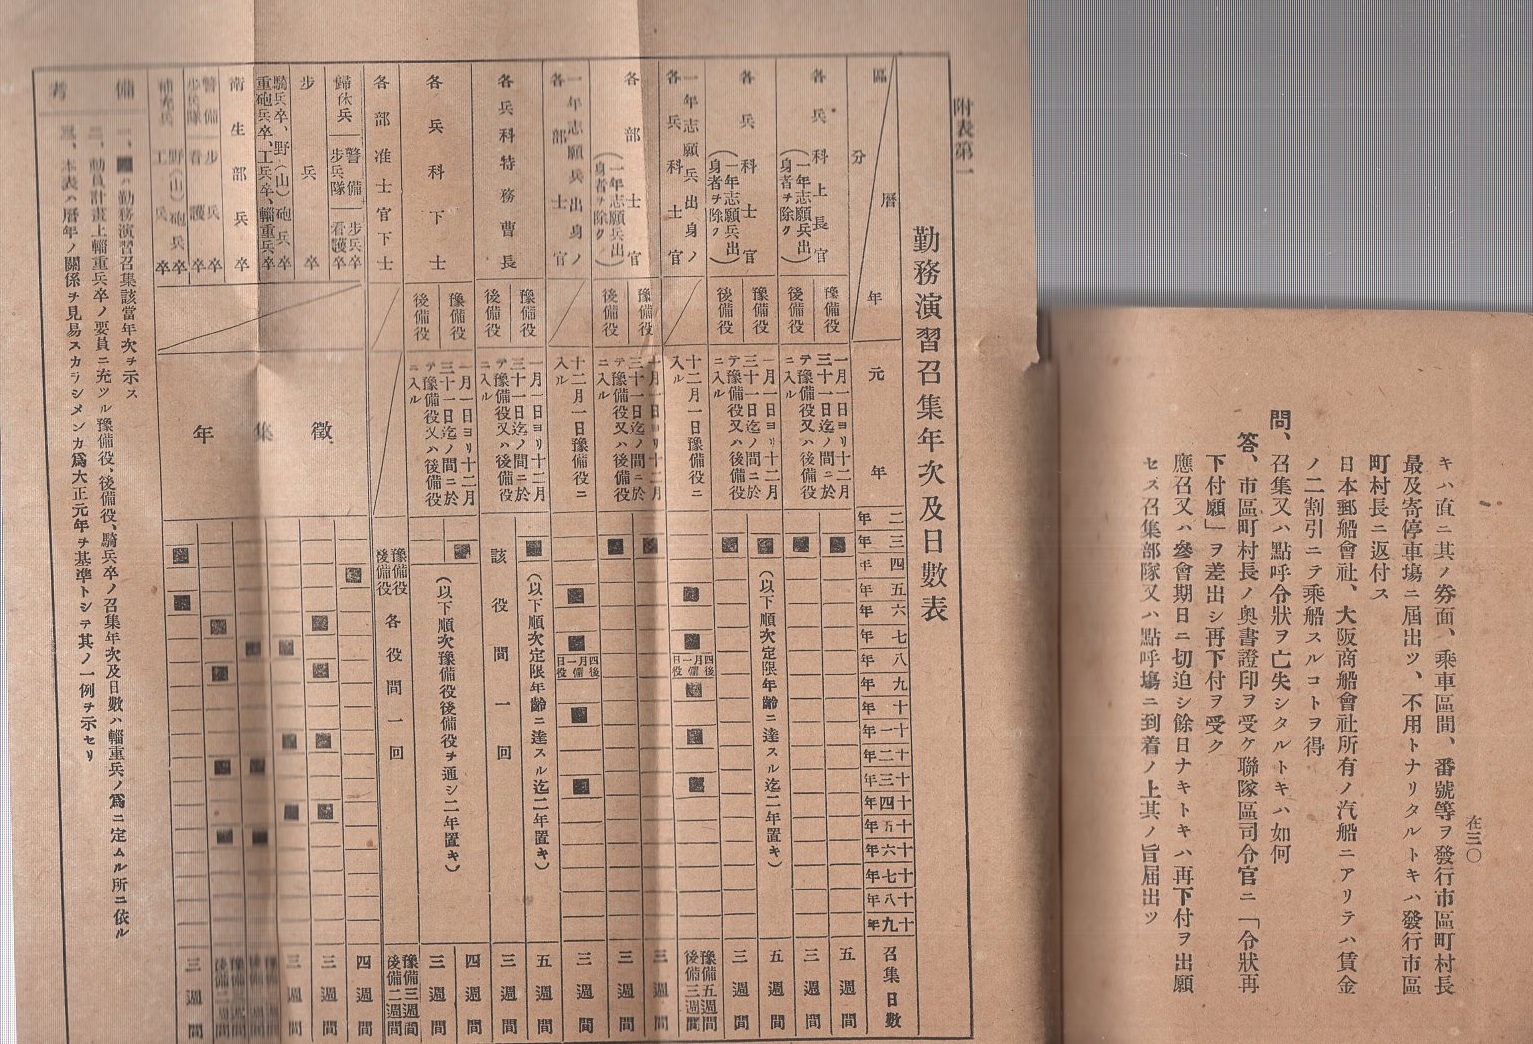 在三〇
キハ直ニ其ノ券面、乘車區間、番號等ヲ發行市區町村長
最及寄停車塲ニ屆出ツ、不用トナリタルトキハ發行市區
町村長ニ返付ス
日本郵船會社、大阪商船會社所有ノ汽船ニアリテハ賃金
ノ二割引ニテ乘船スルコトヲ得
問、召集又ハ點呼令狀ヲ亡失シタルトキハ如何
答、市區町村長ノ奥書證印ヲ受ケ聯隊區司令官ニ「令狀再
下付願」ヲ差出シ再下付ヲ受ク
應召又ハ參會期日ニ切迫シ餘日ナキトキハ再下付ヲ出願
セス召集部隊又ハ點呼塲ニ到着ノ上其ノ旨屆出ツ
附表第一
勤務演習召集年次及日數表
區分 曆年 元年 二年 三年 四年 五年 六年 七年 八年 九年 十年 十一年 十二年 十三年 十四年 十五年 十六年 十七年 十八年 十九年 召集日數
各兵科上長官(一年志願兵出身者ヲ除ク) 豫備役 後備役 一月一日ヨリ十二月三十一日迄ノ間ニ於テ豫備役又ハ後備役ニ入ル 五週間 三週間
各兵科士官(一年志願兵出身者ヲ除ク) 豫備役 後備役 一月一日ヨリ十二月三十一日迄ノ間ニ於テ豫備役又ハ後備役ニ入ル (以下順次定限年齡ニ達スル迄二年置キ) 五週間 三週間
一年志願兵出身ノ各兵科士官 十二月一日豫備役ニ入ル 四月一日後備役 豫備五週間 後備三週間
各部士官(一年志願兵出身者ヲ除ク) 豫備役 後備役 一月一日ヨリ十二月三十一日迄ノ間ニ於テ豫備役又ハ後備役ニ入ル 三週間 三週間
一年志願兵出身ノ各部士官 十二月一日豫備役ニ入ル 四月一日後備役 三週間
各兵科特務曹長 豫備役 後備役 一月一日ヨリ十二月三十一日迄ノ間ニ於テ豫備役又ハ後備役ニ入ル (以下順次定限年齡ニ達スル迄二年置キ) 該役間一回 五週間 三週間
各兵科下士 豫備役 後備役 一月一日ヨリ十二月三十一日迄ノ間ニ於テ豫備役又ハ後備役ニ入ル (以下順次豫備役後備役ヲ通シ二年置キ) 四週間 三週間
各部准士官下士 豫備役 後備役 各役間一回 豫備三週間 後備二週間
歸休兵 警備步兵隊 步兵卒 看護卒 四週間
步兵卒 三週間
騎兵卒、野(山)砲兵卒 重砲兵卒、工兵卒、輜重兵卒 三週間
衛生部兵卒
警備步兵隊 步兵卒 看護卒
補充兵 野(山)砲兵卒 工兵卒 三週間
徵集年
備考
ハ勤務演習召集該當年次ヲ示ス
二、動員計畫上輜重兵卒ノ要員ニ充ツル豫備役、後備役、騎兵卒ノ召集年次及日數ハ輜重兵ノ爲ニ定ムル所ニ依ル
三、本表ハ曆年ノ關係ヲ見易スカラシメンカ爲大正元年ヲ基準トシテ其ノ一例ヲ示セリ